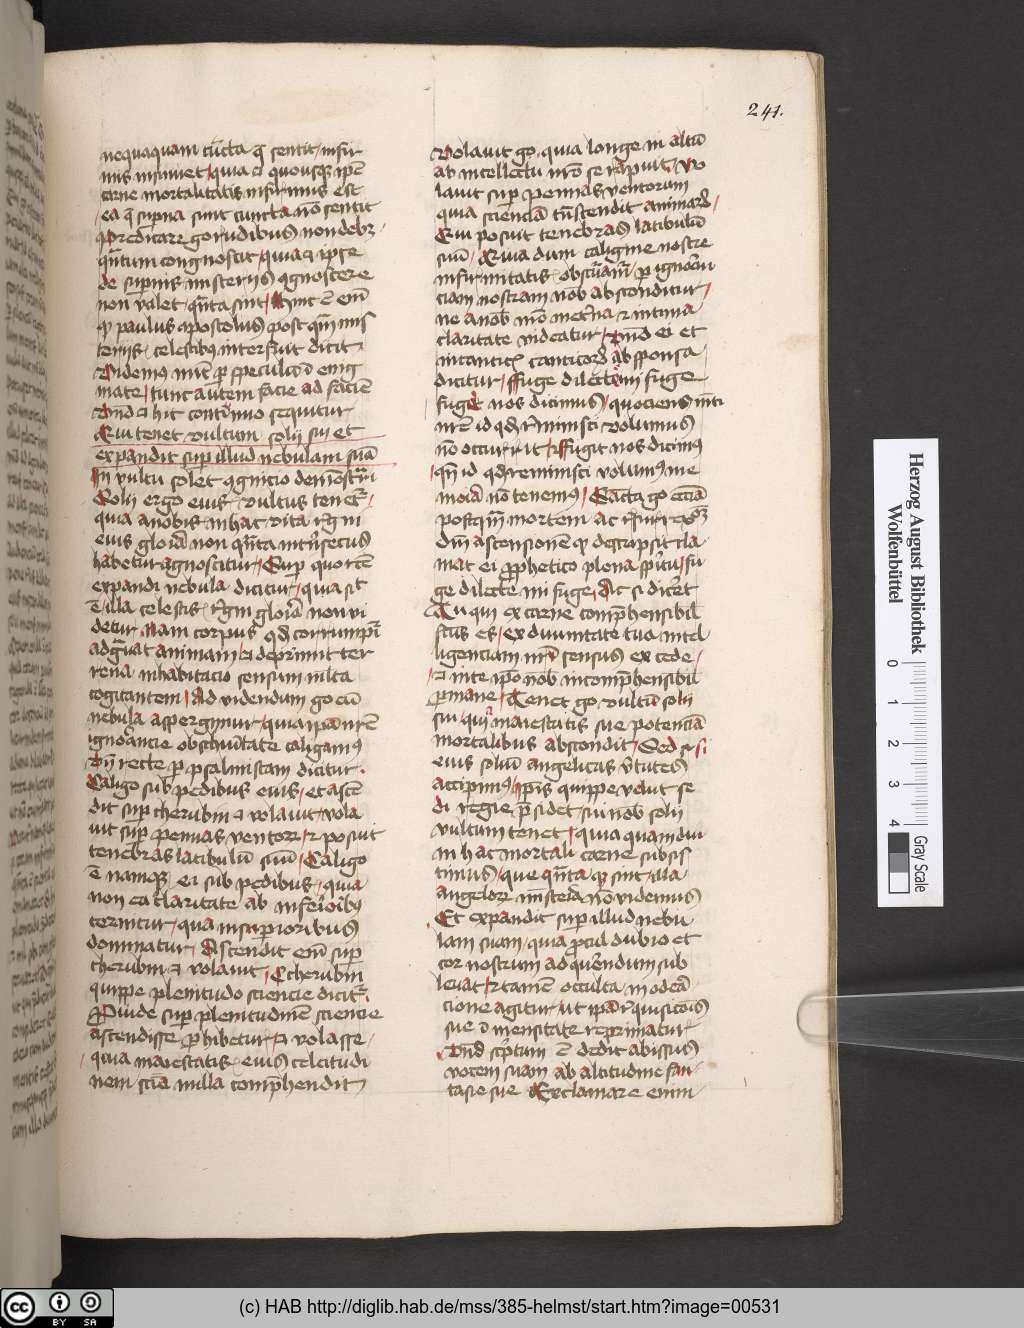 241.
nequaquam cūcta q̄ sentit infir
mis insinuet quia et quousq̄ ip̄e
carne mortalitatis infirmus est
ea q̄ sup̄na sunt cuncta nō sentit
p̄dicare go rudibus non debȝ
q̄ntum congnoscit quia et ipse
de sup̄nis misteriis ꝯgnoscere
non valet q̄nta sint Hinc ē em̄
qƺ paulus apostolus post q̄m mis
teriis celestibꝰ interfuit dicit
Videmꝰ nūc p̄ speculū ī enig
mate tunc autem facie ad faciē
Vnd et hic continuo sequitur
Qui tenet vultum solii sui et
expandit sup̄ illud nebulam suā
In vultu solet ꝯgnitio demōstrari
Solii ergo eius vultus tenet᷑
quia a nobis in hac vita r̄gni
eius gloīa non q̄nta intrīsecus
habetur agnoscitur Sup̄ quo recē
expandi nebula dicitur quia sic̄
ē illa celestis r̄gni gloīa non vi
detur Nam corpus qd̄ corrumpit᷑
adg̈uat animam et deprimit ter
rena inhabitacio sensum mīta
cogitantem Ad videndum go eū
nebula aspergimur quia ip̄a nr̄e
ignorancie obscuritate caligamꝰ
Vn̄ recte p̄ psalmistam dicitur
Caligo sub pedibus eius et ascē
dit sup̄ cherubin et volauit vola
uit sup̄ pennas ventorꝝ et posuit
tenebras latibulū suū Caligo
ē namqꝫ ei sub pedibus quia
non ea claritate ab inferioibꝰ
cernitur qua in sup̄ioribus
dominatur Ascendit em̄ sup̄
cherubin et volauit Cherubin
quippe plenitudo sciencie dicit᷑
Proinde sup̄ plenitudinē sciencie
ascendisse p̄hibetur et volasse
quia maiestatis eius celcitudi
nem scīa nulla comp̄hendit
Volauit go quia longe in altū
ab intellectu nr̄o se rapuit Vo
lauit sup̄ pennas ventorum
quia sciencīa trāscendit animarꝝ
Qui posuit tenebras latibulū
suū Quia dum caligine nostre
infirmitatis obscuramᷣ p̄ ignorā
ciam nostram nob̄ absconditur
ne a nob̄ mō et̄na et intima
claritate videatur Vnd ei et
in canticis canticorꝝ ab sponsa
dicitur Fuge dilecte mi fuge
fugē nos dicimus quociens mēti
nr̄e id qd r̄minisci volumus
nō occurrit Fugit nos dicimꝰ
q̄n id qd reminisci volumꝰ me
moīa nō tenemꝰ Sācta go ecc̄ia
postq̄m mortem ac r̄surrexcōȝ
dn̄i ascensionē qƺ descripsit cla
mat ei p̄phetico plena sp̄itu fu
ge dilecte mi fuge Ac si dicēt
Tu qui ex carne comp̄hensibil̄
fctus es ex diuinitate tua intel
ligenciam nr̄i sensus excede
et in te ip̄o nob̄ incomp̄hensibil̄
p̄mane Tenet go vultū solii
sui qui maiestatis sue potenciā
mortalibus abscondit Sed si si
eius soliū angelicas v̄tutes
accipimꝰ ip̄is quippe velut se
di regie p̄sidet sui nob̄ solii
vultum tenet quia quamdiu
in hac mortali carne subsis
timus que q̄nta qƺ sint illa
angelorꝝ misteīa nō videmus
Et expandit sup̄ illud nebu
lam suam quia p̄cul dubio et
cor nostrum ad querendum sub
leuat et tamē occulta moderā
cione agitur ut ip̄a r̄quisicōis
sue ī mensitate reprimatur
Vnd sc̄ptum ē dedit abissus
vocem suam ab altitudine fan
tasie sue Exclamare enim
Herzog August Bibliothek
Wolfenbüttel
0 1 2 3 4
Gray Scale
cc BY SA
(c) HAB http://diglib.hab.de/mss/385-helmst/start.htm?image=00531